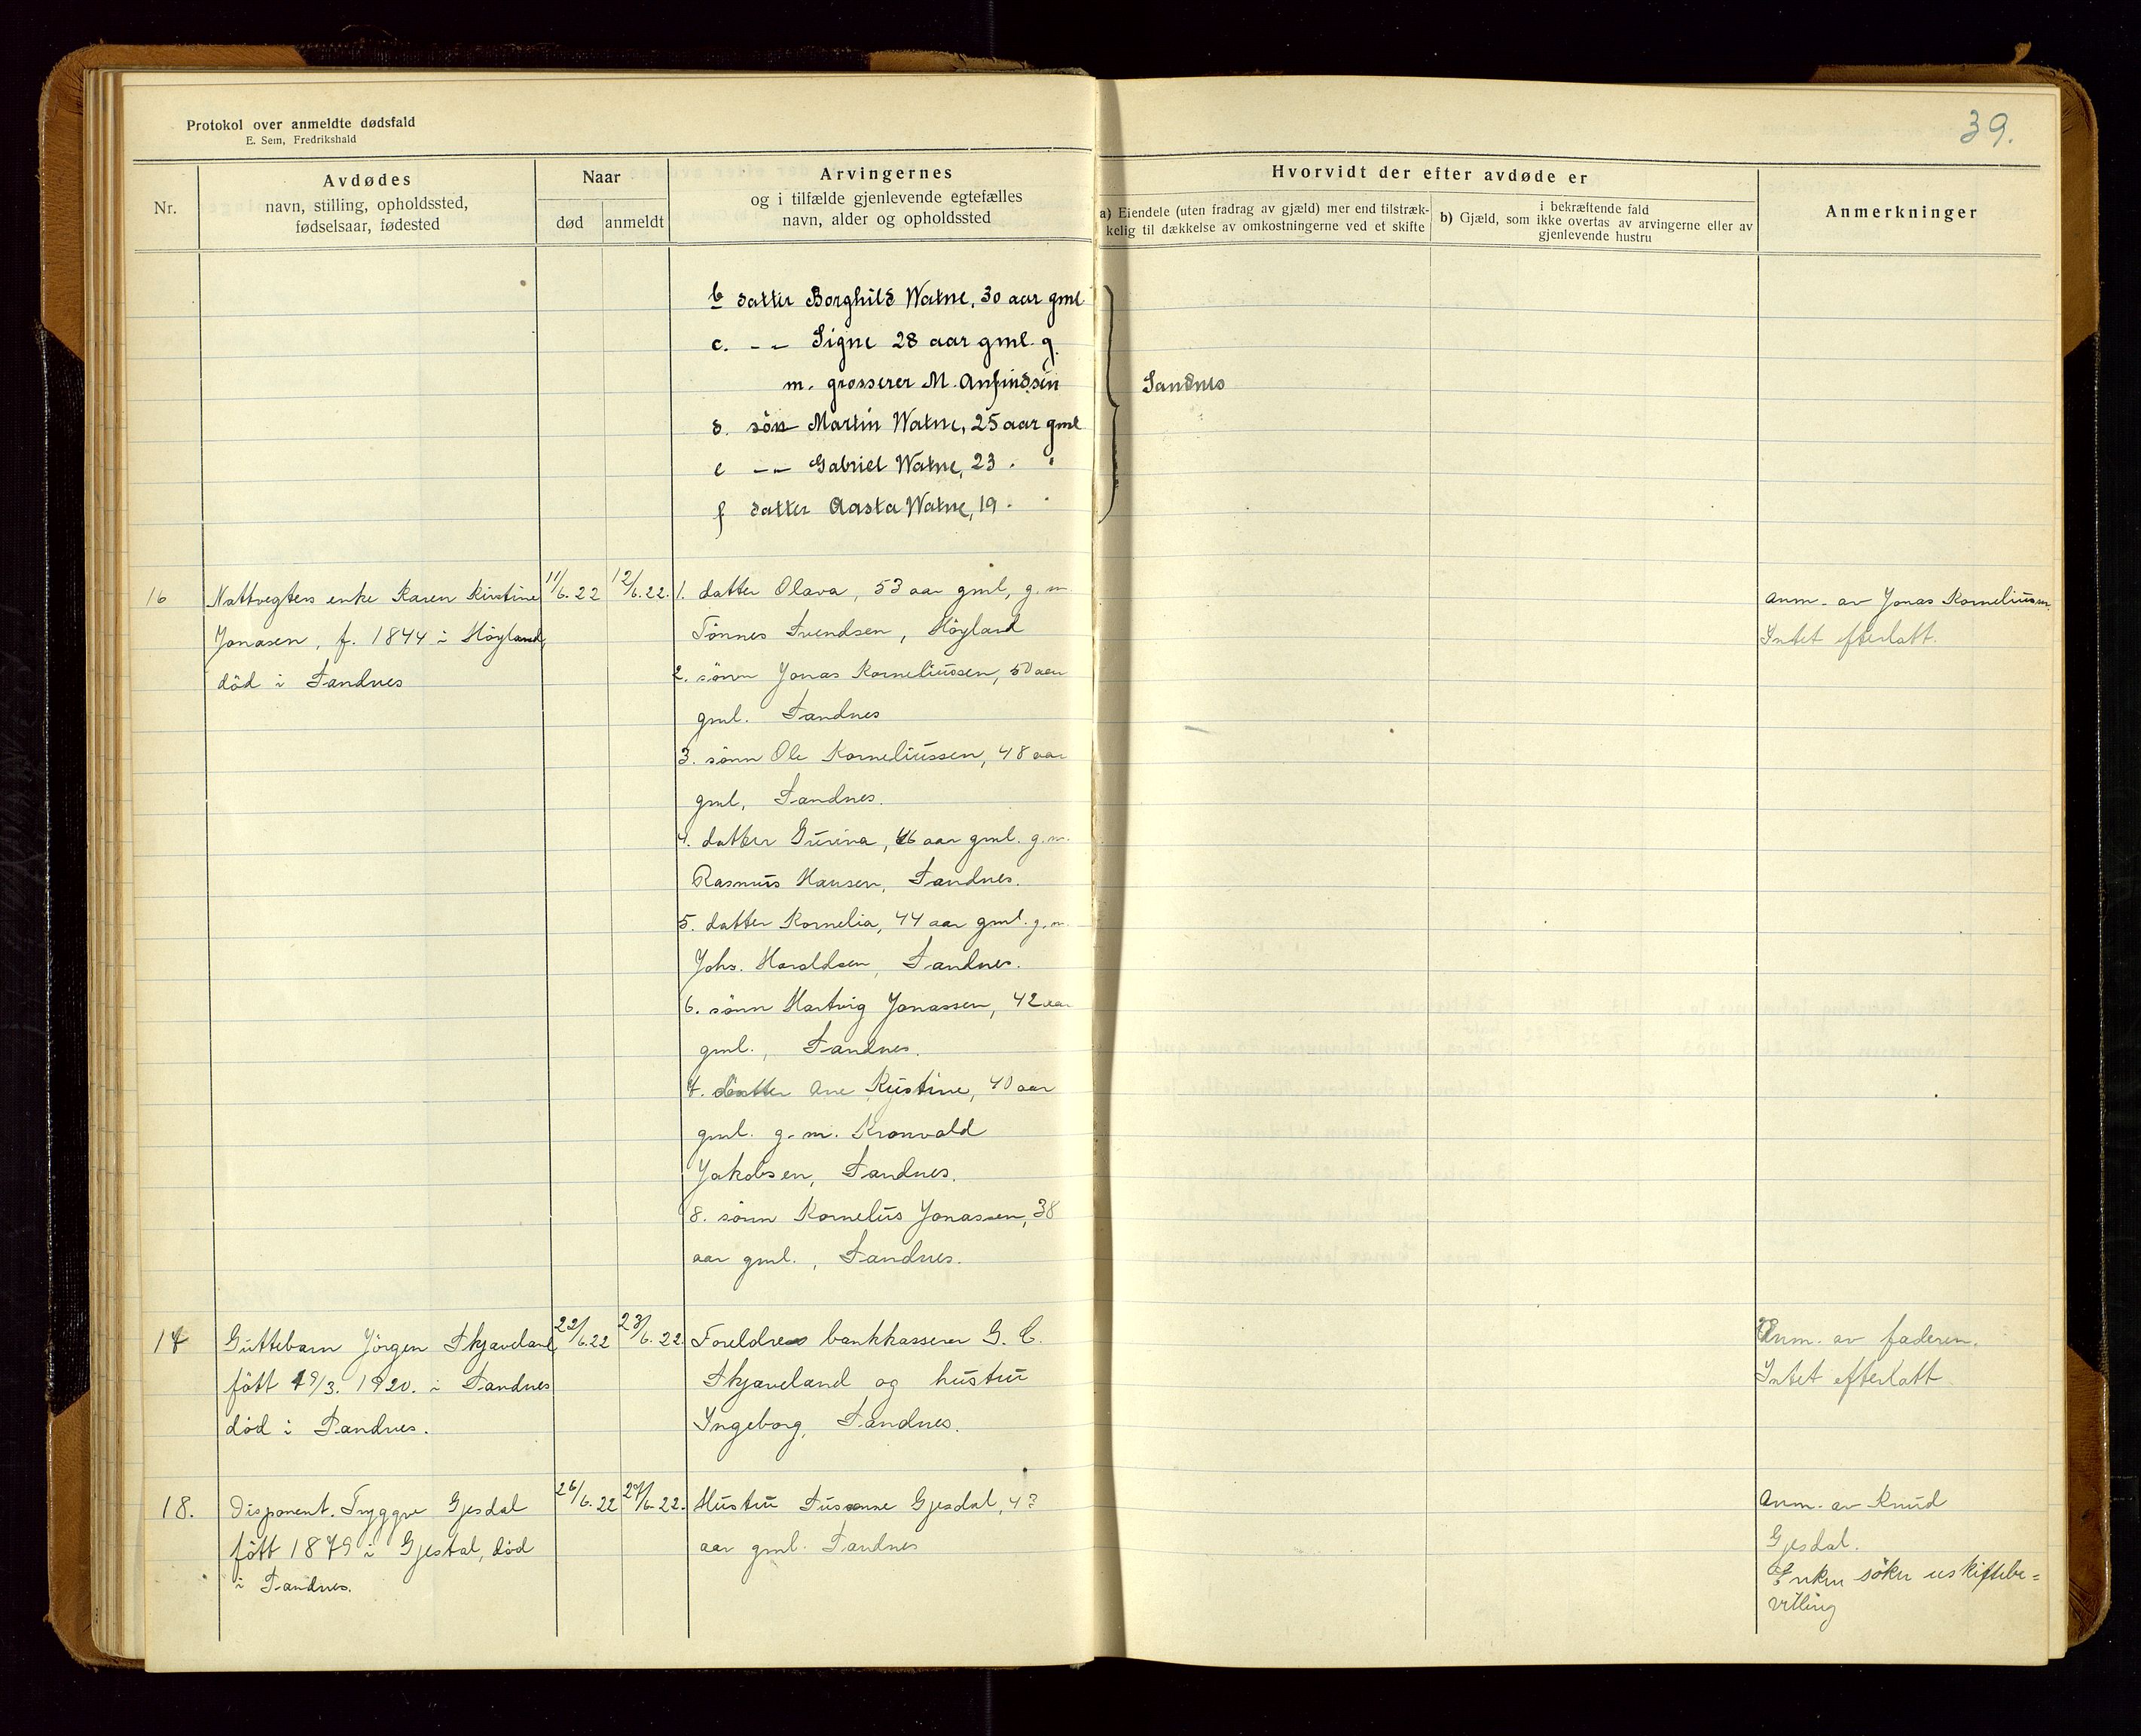 39.
Protokol over anmeldte dødsfald
E. Sem, Fredrikshald
Nr.
Avdødes
navn, stilling, opholdssted,
fødselsaar, fødested
Naar
død
anmeldt
Arvingernes
og i tilfælde gjenlevende egtefælles
navn, alder og opholdssted
Hvorvidt der efter avdøde er
a) Eiendele (uten fradrag av gjæld) mer end tilstræk-
kelig til dækkelse av omkostningerne ved et skifte
i bekræftende fald
b) Gjæld, som ikke overtas av arvingerne eller av
gjenlevende hustru
Anmerkninger
b datter Borghild Watne, 30 aar gml
c. -"- Signe 28 aar gml. g.
m. grosserer M. Anfindsen
Sandnes
d. søn Martin Watne, 25 aar gml
e -"- Gabriel Watne, 23 " "
f datter Aasta Watne, 19 " "
16
Nattvegters enke Karen Kirstine
Jonasen, f. 1844 i Höyland,
död i Sandnes
11/6.22
12/6.22.
1. datter Olava, 53 aar gml, g. m.
Tönnes Svendsen, Höyland
2. sönn Jonas Korneliussen, 50 aar
gml. Sandnes
3. sönn Ole Korneliussen, 48 aar
gml, Sandnes.
4. datter Gurina, 46 aar gml. g. m.
Rasmus Hansen, Sandnes.
5. datter Kornelia, 44 aar gml. g. m.
Johs. Haraldsen, Sandnes.
6. sönn Hartvig Jonassen, 42 aar
gml., Sandnes.
7. datter Ane Kristine, 40 aar
gml. g. m. Kronvald
Jakobsen, Sandnes.
8. sönn Kornelius Jonassen, 38
aar gml., Sandnes.
Anm. av Jonas Korneliussen.
Intet efterlatt.
17
Guttebarn Jörgen Skjaveland
fött 19/3. 1920. i Sandnes
död i Sandnes.
22/6.22
23/6.22.
Foreldre bankkasserer G. C.
Skjaveland og hustru
Ingeborg, Sandnes.
Anm. av faderen.
Intet efterlatt
18.
Disponent. Tryggve Gjesdal
fött 1879 i Gjestal, död
i Sandnes.
26/6.22
27/6.22.
Hustru Susanne Gjesdal, 43
aar gml. Sandnes
Anm. av Knud
Gjesdal.
Enken söker uskiftebe=
villing